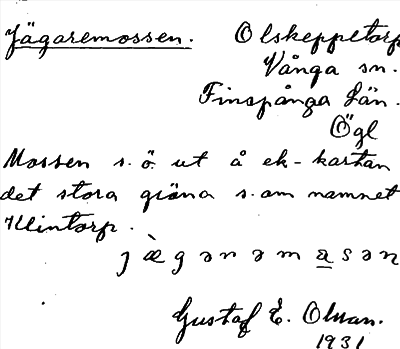 Jägaremossen. Olskeppetorp
Vånga sn.
Finspånga län.
Ögl
Mossen s.ö. ut å ek-kartan
det stora gröna s.om namnet
Klintorp.
Gustaf E.
1931